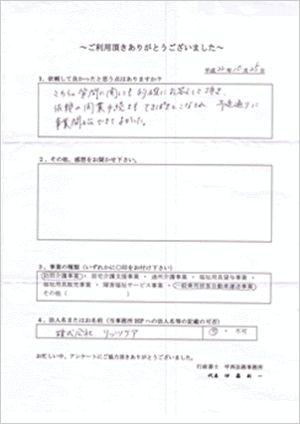 ～ご利用頂きありがとうございました～
平成22年10月25日
1、依頼して良かったと思う点はありますか？
こちらの質問に関しても的確にお答えして頂き、
依頼の開業手続きも
予定通りに
事業開始ができました。
2、その他、感想をお聞かせ下さい。
3、事業の種類（いずれかに○印をお付け下さい）
訪問介護事業・居宅介護支援事業・通所介護事業・福祉用具貸与事業・
福祉用具販売事業・障害福祉サービス事業・一般乗用旅客自動車運送事業
その他（　　　　）
4、法人名またはお名前（当事務所HPへの法人名等の記載の可否）
株式会社 リッツケア
可・不可
お忙しい中、アンケートにご協力頂きありがとうございました。
行政書士
法務事務所
代表